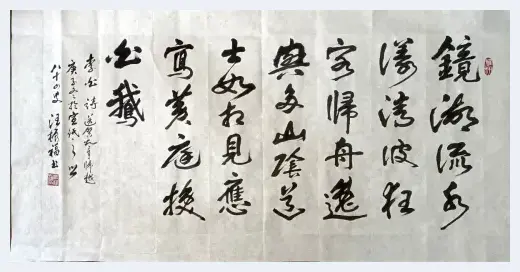 鏡湖流水
漾清波狂
客歸舟逸
興多山陰道
士如相見應
寫黃庭換
白鵝
李白詩送賀賓客歸越
庚子冬於宣城之
八十四叟 汪振福書